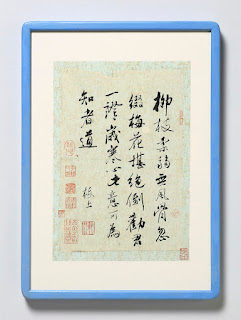 柳枝柔弱無風骨忽
綴梅花堪絕倒勸君
一證歲寒心此意可為
知者道